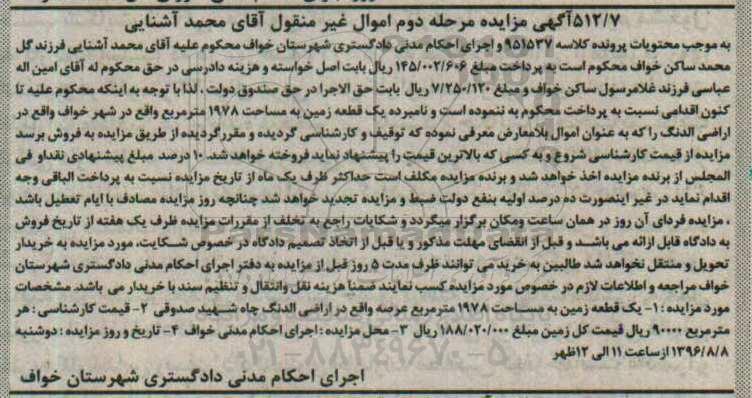 ۵۱۲/۷آگهی مزایده مرحله دوم اموال غیر منقول آقای محمد آشنایی
به موجب محتویات پرونده کلاسه ۹۵۱۵۳۷ و اجرای احکام مدنی دادگستری شهرستان خواف محکوم علیه آقای محمد آشنایی فرزند گل
محمد ساکن خواف محکوم است به پرداخت مبلغ ۱۴۵/۰۰۲/۶۰۶ ریال بابت اصل خواسته و هزینه دادرسی در حق محکوم له آقای امین اله
عباسی فرزند غلامرسول ساکن خواف و مبلغ ۷/۲۵۰/۱۲۰ ریال بابت حق الاجرا در حق صندوق دولت . لذا با توجه به اینکه محکوم علیه تا
کنون اقدامی نسبت به پرداخت محکوم به ننموده است و نامبرده یک قطعه زمین به مساحت ۱۹۷۸ مترمربع واقع در شهر خواف واقع در
اراضی الدنگ را که به عنوان اموال بلامعارض معرفی نموده که توقیف و کارشناسی گردیده و مقررگردیده از طریق مزایده به فروش برسد
مزایده از قیمت کارشناسی شروع و به کسی که بالاترین قیمت را پیشنهاد نماید فروخته خواهدشد. ۱۰ درصد مبلغ پیشنهادی نقداو فی
المجلس از برنده مزایده اخذ خواهد شد و برنده مزایده مکلف است حداکثر ظرف یک ماه از تاریخ مزایده نسبت به پرداخت الباقی وجه
اقدام نماید در غیر اینصورت ده درصد اولیه بنفع دولت ضبط و مزایده تجدید خواهد شد چنانچه روز مزایده مصادف با ایام تعطیل باشد
، مزایده فردای آن روز در همان ساعت ومکان برگزار میگردد و شکایات راجع به تخلف از مقررات مزایده ظرف یک هفته از تاریخ فروش
به دادگاه قابل ارائه می باشد و قبل از انقضای مهلت مذکور و یا قبل از اتخاذ تصمیم دادگاه در خصوص شکایت، مورد مزایده به خریدار
تحویل و منتقل نخواهد شد طالبین به خرید می توانند ظرف مدت ۵ روز قبل از مزایده به دفتر اجرای احکام مدنی دادگستری شهرستان
خواف مراجعه و اطلاعات لازم در خصوص مورد مزایده کسب نمایند ضمنا هزینه نقل وانتقال و تنظیم سند با خریدار می باشد. مشخصات
مورد مزایده : ۱- یک قطعه زمین به مساحت ۱۹۷۸ مترمربع عرصه واقع در اراضی الدنگ چاه شهید صدوقی ۲- قیمت کارشناسی : هر
مترمربع ۹۰۰۰۰ ریال قیمت کل زمین مبلغ ۱۸۸/۰۲۰/۰۰۰ ریال ۳- محل مزایده : اجرای احکام مدنی خواف ۴- تاریخ و روز مزایده : دوشنبه
۱۳۹۶/۸/۸ ازساعت ۱۱ الی ۱۲ظهر
اجرای احکام مدنی دادگستری شهرستان خواف
۰۲۱-۸۸۳۴۹۶۷۰-۵